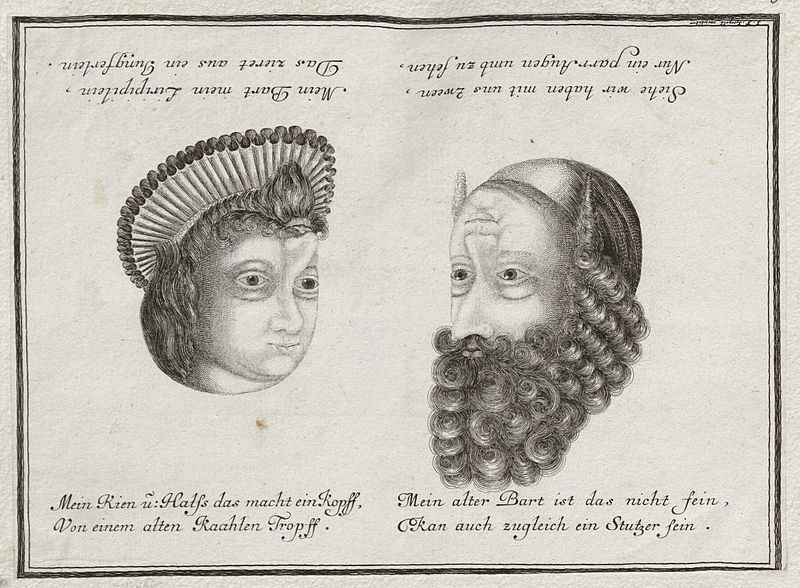 Mein Bart mein Liripiplein,
Das zieret aus ein Jungferlein.
Siehe wir haben mit uns Zween,
Nur ein parr Augen umb zu ſehen,
Mein Kien ũ: Halſs das macht ein Kopff,
Von einem alten Kaahlen Tropff.
Mein alter Bart ist das nicht fein,
Kan auch zugleich ein Stutzer ſein.